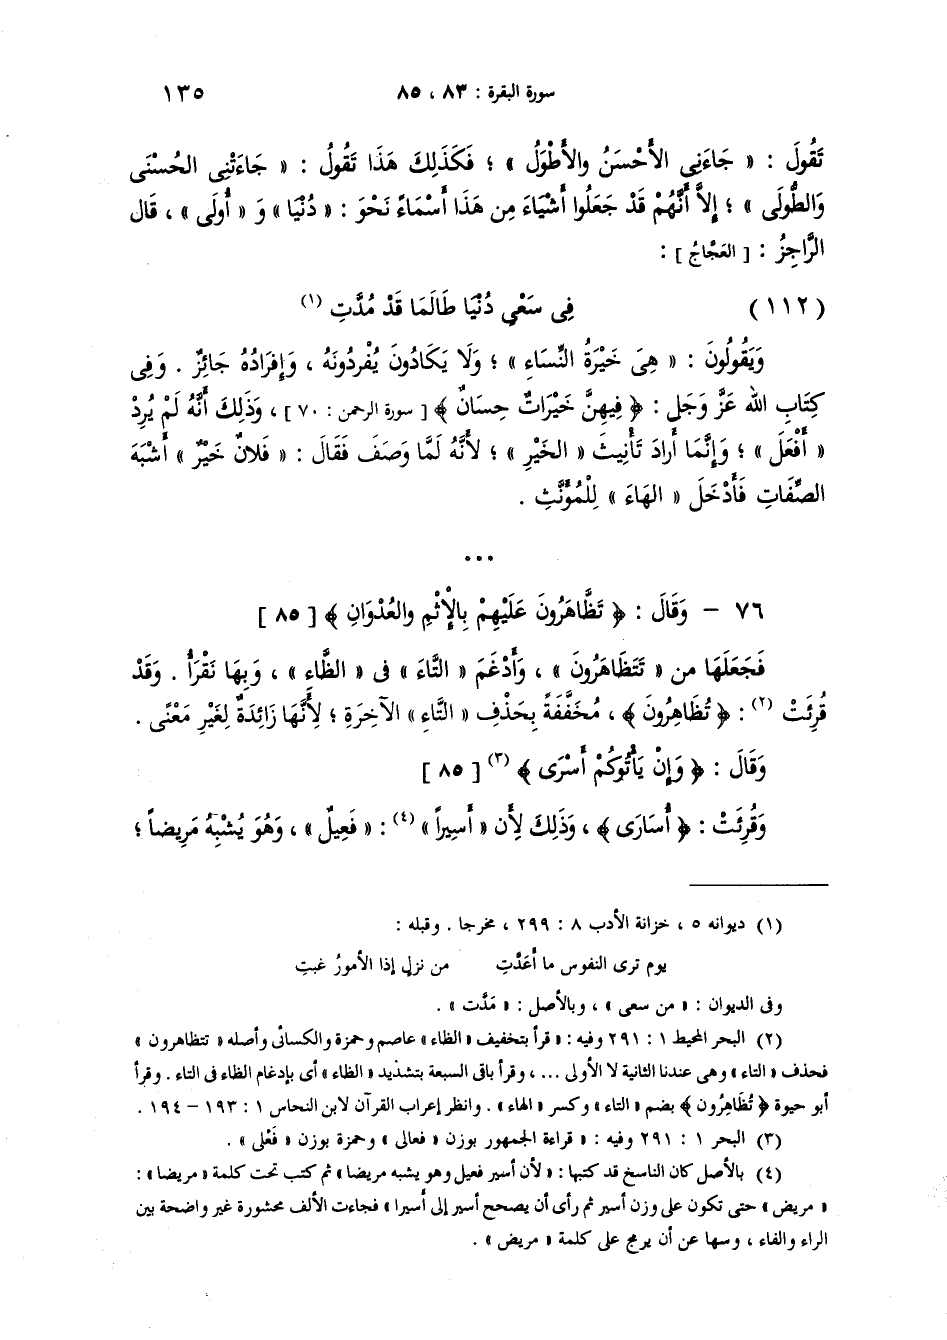 سورة البقرة : ٨٣ ، ٨٥ ١٣٥
تَقُولَ : « جَاءَنِي الأَحْسَنُ والأَطْوَلُ » ؛ فَكَذَلِكَ هَذَا تَقُولُ : « جَاءَتْنِي الحُسْنَى
وَالطُّولَى » ؛ إِلاَّ أَنَّهُمْ قَدْ جَعَلُوا أَشْيَاءَ مِن هَذَا أَسْمَاءً نَحْوَ : « دُنْيَا » وَ « أُولَى » ، قَال
الرَّاجِزُ : [ العَجَّاجُ ] :
(١١٢) فِي سَعْىِ دُنْيَا طَالَمَا قَدْ مُدَّتِ (١)
وَيَقُولُونَ : « هِيَ خَيْرَةُ النِّسَاءِ » ؛ وَلَا يَكَادُونَ يُفْرِدُونَهُ ، وَإِفرَادُهُ جَائِزٌ . وَفِي
كِتَابِ اللهِ عَزَّ وَجَل : ﴿ فِيهِنَّ خَيْرَاتٌ حِسَانٌ ﴾ [ سورة الرحمن : ٧٠ ] ، وَذَلِكَ أَنَّهُ لَمْ يُرِدْ
« أَفْعَلَ » ؛ وَإِنَّمَا أَرادَ تَأْنِيثَ « الخَيْرِ » ؛ لأَنَّهُ لَمَّا وَصَفَ فَقَالَ : « فَلانٌ خَيْرٌ » أَشْبَهَ
الصِّفَاتِ فَأَدْخَلَ « الهَاءَ » لِلْمُؤَنَّثِ .
...
٧٦ – وَقَالَ : ﴿ تَظَّاهَرُونَ عَلَيْهِمْ بِالْإِثْمِ والعُدْوَانِ ﴾ [ ٨٥ ]
فَجَعَلَهَا من « تَتَظَاهَرُونَ » ، وَأَدْغَمَ « التَّاءَ » فى « الظَّاءِ » ، وَبِهَا نَقْرَأُ . وَقَدْ
قُرِئَتْ (٢) : ﴿ تُظَاهِرُونَ ﴾ ، مُخَفَّفَةً بِحَذْفِ « التَّاءِ » الآخِرَةِ ؛ لِأَنَّهَا زَائِدَةٌ لِغَيْرِ مَعْنًى .
وَقَالَ : ﴿ وَإِنْ يَأْتُوكُمْ أَسْرَى ﴾ (٣) [ ٨٥ ]
وَقُرِئَتْ : ﴿ أُسَارَى ﴾ ، وَذَلِكَ لِأَن « أَسِيراً » (٤) : « فَعِيلٌ » ، وَهُوَ يُشْبِهُ مَرِيضاً ؛
(١) ديوانه ٥ ، خزانة الأدب ٨ : ٢٩٩ ، مخرجا . وقبله :
يوم ترى النفوس ما أَعَدَّتِ من نزلٍ إذا الأمورُ غبتِ
وفى الديوان : « من سعى » ، وبالأصل : « مَدَّت » .
(٢) البحر المحيط ١ : ٢٩١ وفيه : « قرأ بتخفيف « الظاء » عاصم وحمزة والكسائى وأصله « تتظاهرون »
فحذف « التاء » وهى عندنا الثانية لا الأولى ... ، وقرأ باقى السبعة بتشديد « الظاء » أى بإدغام الظاء فى التاء . وقرأ
أبو حيوة ﴿ تُظَاهِرُون ﴾ بضم « التاء » وكسر « الهاء » . وانظر إعراب القرآن لابن النحاس ١ : ١٩٣ – ١٩٤ .
(٣) البحر ١ : ٢٩١ وفيه : « قراءة الجمهور بوزن « فعالى » وحمزة بوزن « فَعْلى » .
(٤) بالأصل كان الناسخ قد كتبها : « لأن أسير فعيل وهو يشبه مريضا » ثم كتب تحت كلمة « مريضا » :
« مريض » حتى تكون على وزن أسير ثم رأى أن يصحح أسير إلى أسيرا » فجاءت الألف محشورة غير واضحة بين
الراء والفاء ، وسها عن أن يرمج على كلمة « مريض » .